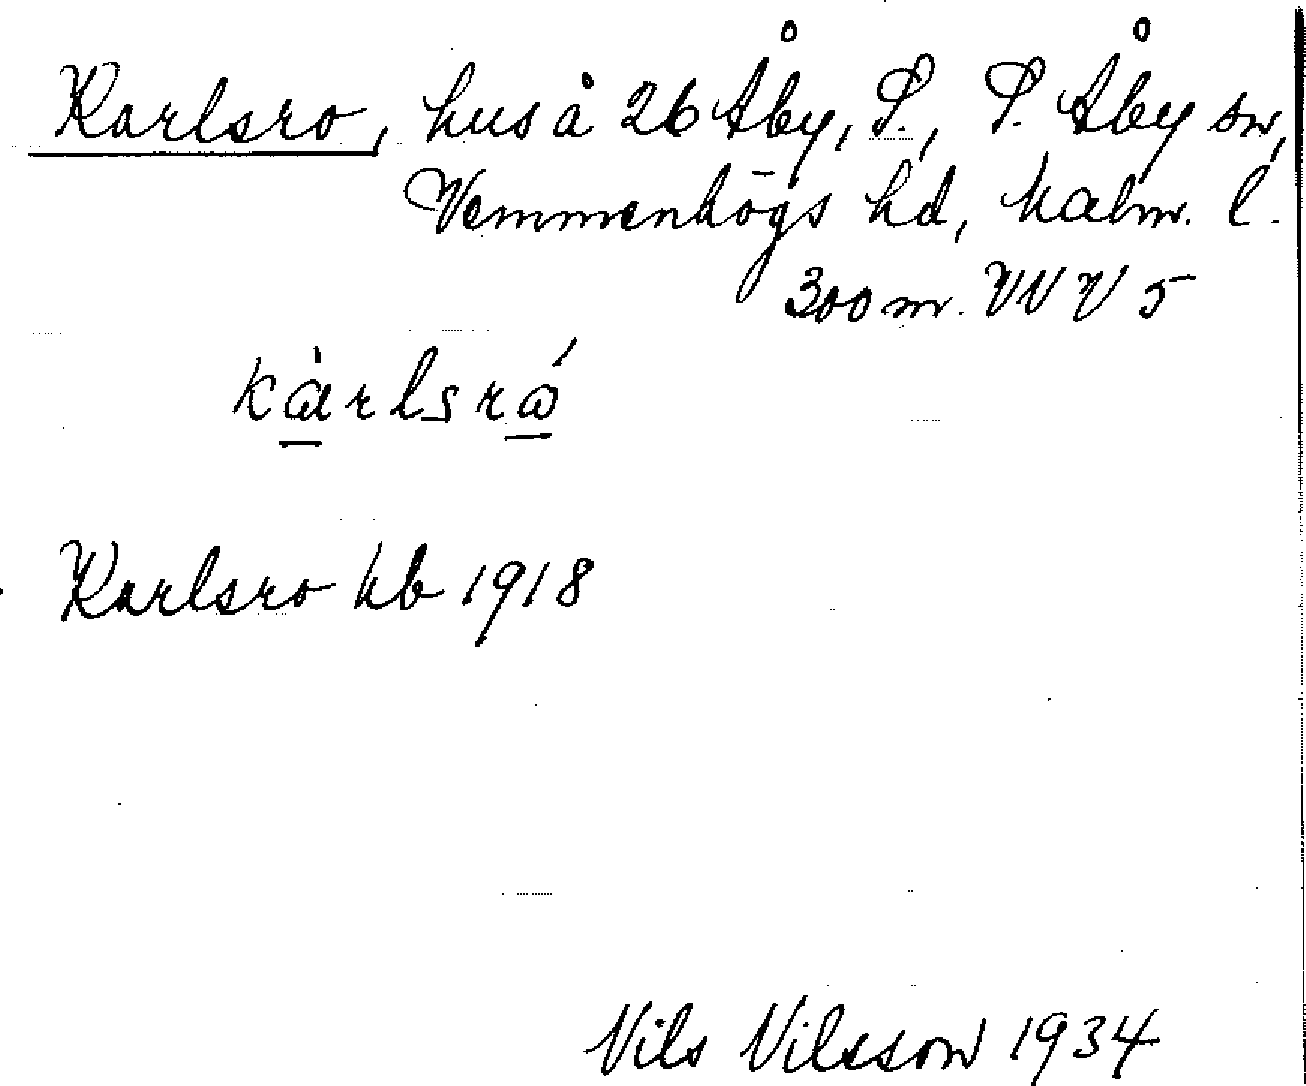 Karlsro, hus å 26 Åby, S., S. Åby sn,
Vemmenhögs hd, Malm. l.
300 m. VNV 5
Karlsro kb 1918
Nils Nilsson 1934